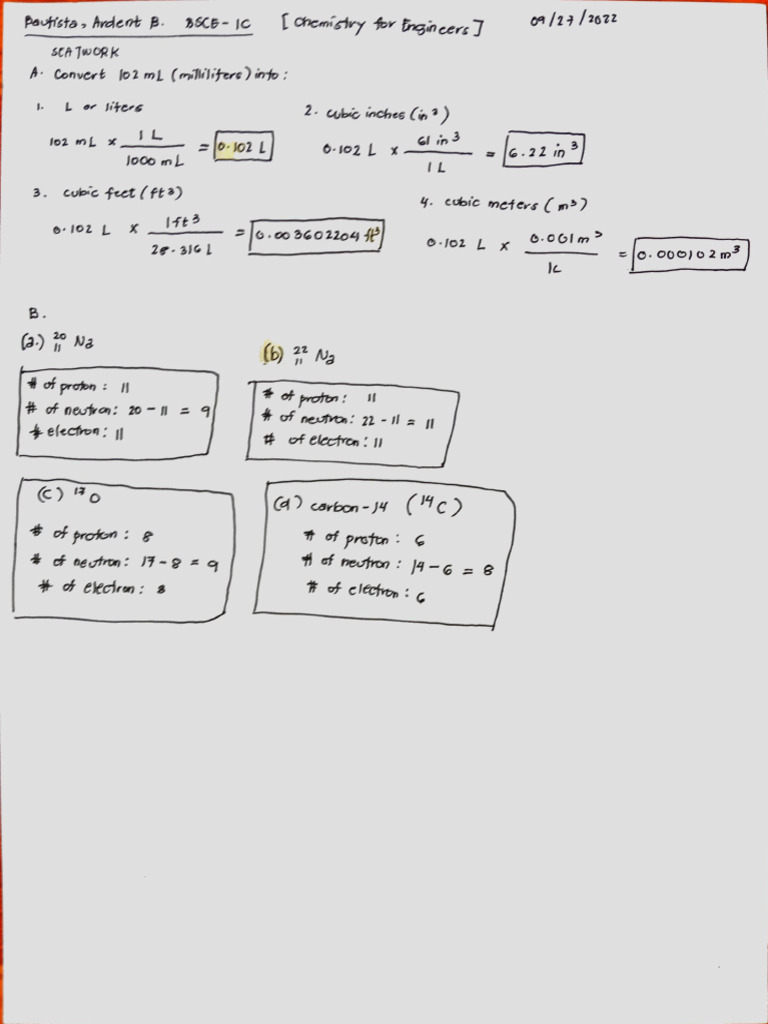 Bautista, Ardent B. BSCE-1C [Chemistry for Engineers] 09/27/2022
SEATWORK
A. Convert 102 mL (milliliters) into:
1. L or liters
102 mL x 1 L / 1000 mL = 0.102 L
2. cubic inches (in³)
0.102 L x 61 in³ / 1 L = 6.22 in³
3. cubic feet (ft³)
0.102 L x 1 ft³ / 28.316 L = 0.003602204 ft³
4. cubic meters (m³)
0.102 L x 0.001 m³ / 1L = 0.000102 m³
B.
(a.) ²⁰₁₁ Na
# of proton: 11
# of neutron: 20 - 11 = 9
# electron: 11
(b) ²²₁₁ Na
# of proton: 11
# of neutron: 22 - 11 = 11
# of electron: 11
(c) ¹⁷O
# of proton: 8
# of neutron: 17 - 8 = 9
# of electron: 8
(d) carbon-14 (¹⁴C)
# of proton: 6
# of neutron: 14 - 6 = 8
# of electron: 6